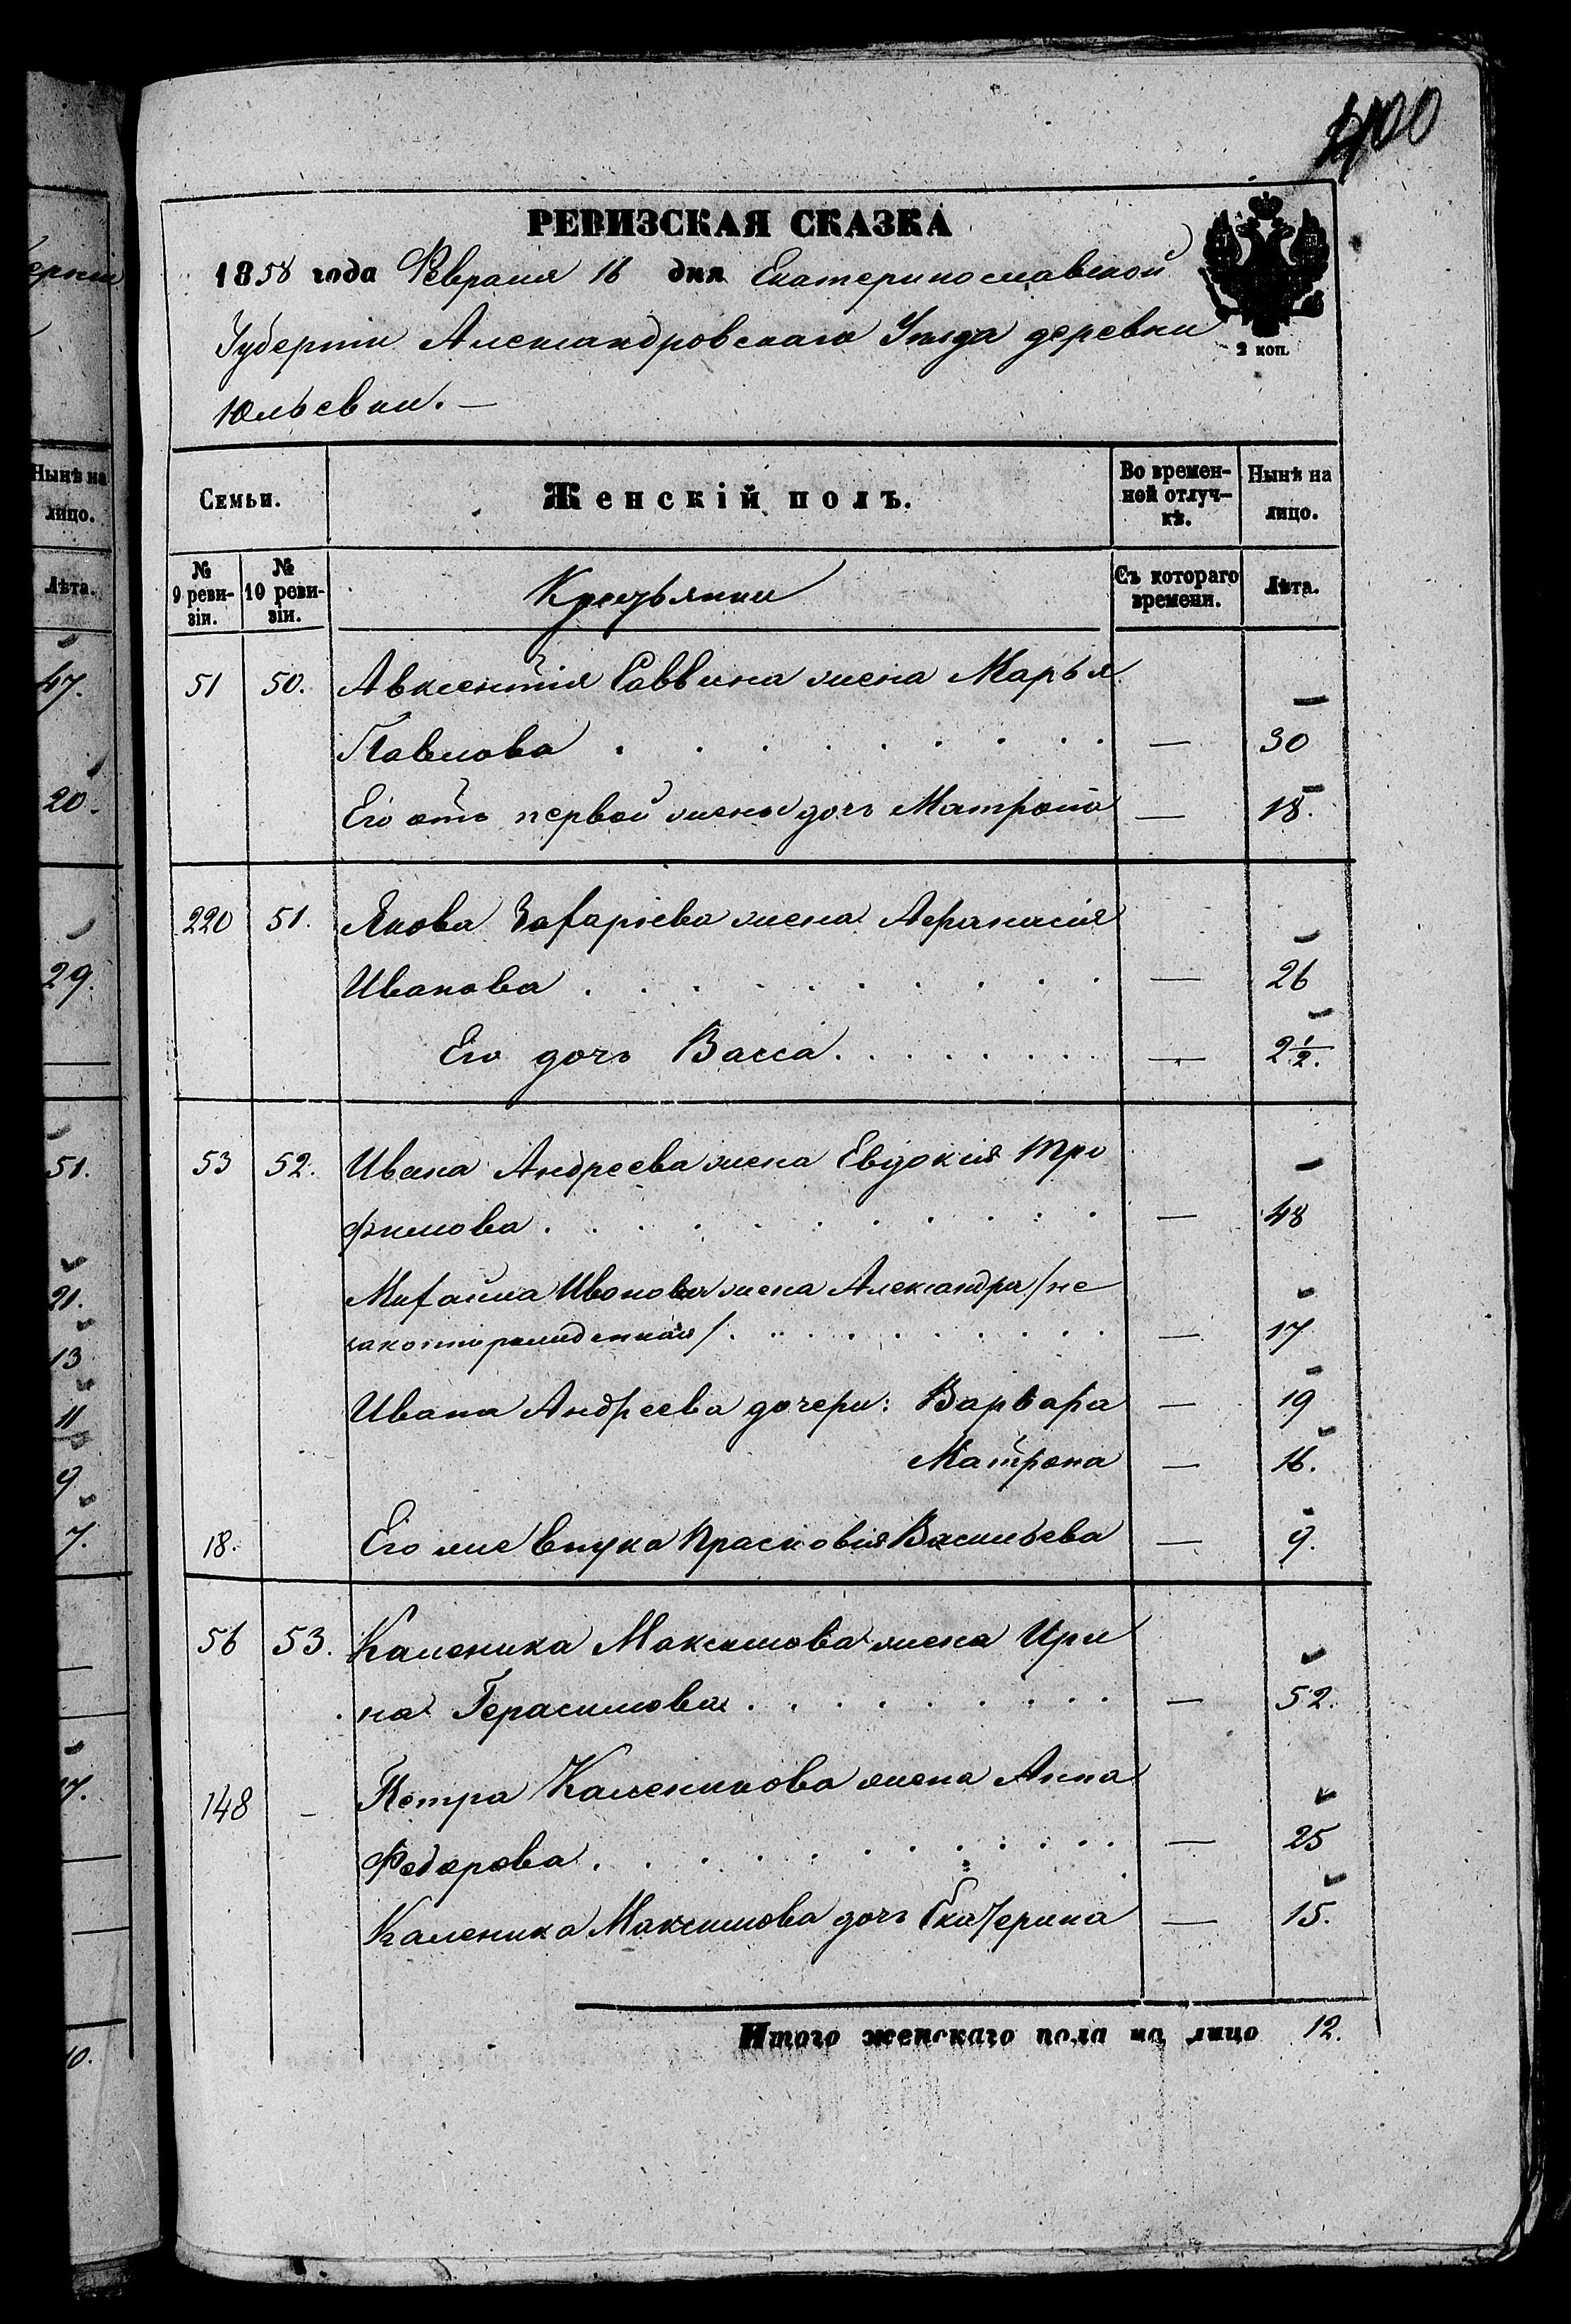 400
РЕВИЗСКАЯ СКАЗКА
1858 года Февраля 16 дня Екатеринославской
Губерніи Александровскаго Уѣзда деревни
Юльевки. —
2 коп.
Семьи.
Женскій полъ.
Во времен-
ной отлуч-
кѣ.
Нынѣ на
лицо.
№
9 реви-
зіи.
№
10 реви-
зіи.
Крестьянки
Съ котораго
времени.
Лѣта.
51 50. Авксентія Саввина жена Марья
Павлова . . . . . . . . — 30
Его отъ первой жены дочь Матрона — 18.
220 51. Якова Захаріева жена Афанасія
Иванова . . . . . . . . . — 26
Его дочь Васса . . . . . . . . — 2½.
53 52. Ивана Андреева жена Евдокія Тро
фимова . . . . . . . . . . — 48
Михайла Иванова жена Александра /не
законнорожденная/ . . . . . . . . — 17
Ивана Андреева дочери: Варвара — 19
Матрона — 16.
18. Его же внука Прасковія Васильева — 9.
56 53. Каленика Максимова жена Ири
на Герасимова . . . . . . . . — 52.
148 – Петра Каленикова жена Анна
Федорова . . . . . . . . . . — 25
Каленика Максимова дочь Екатерина — 15.
Итого женскаго пола на лицо 12.
Нынѣ на
лицо.
Лѣта.
47.
20.
29.
51.
21.
13
11
9
7.